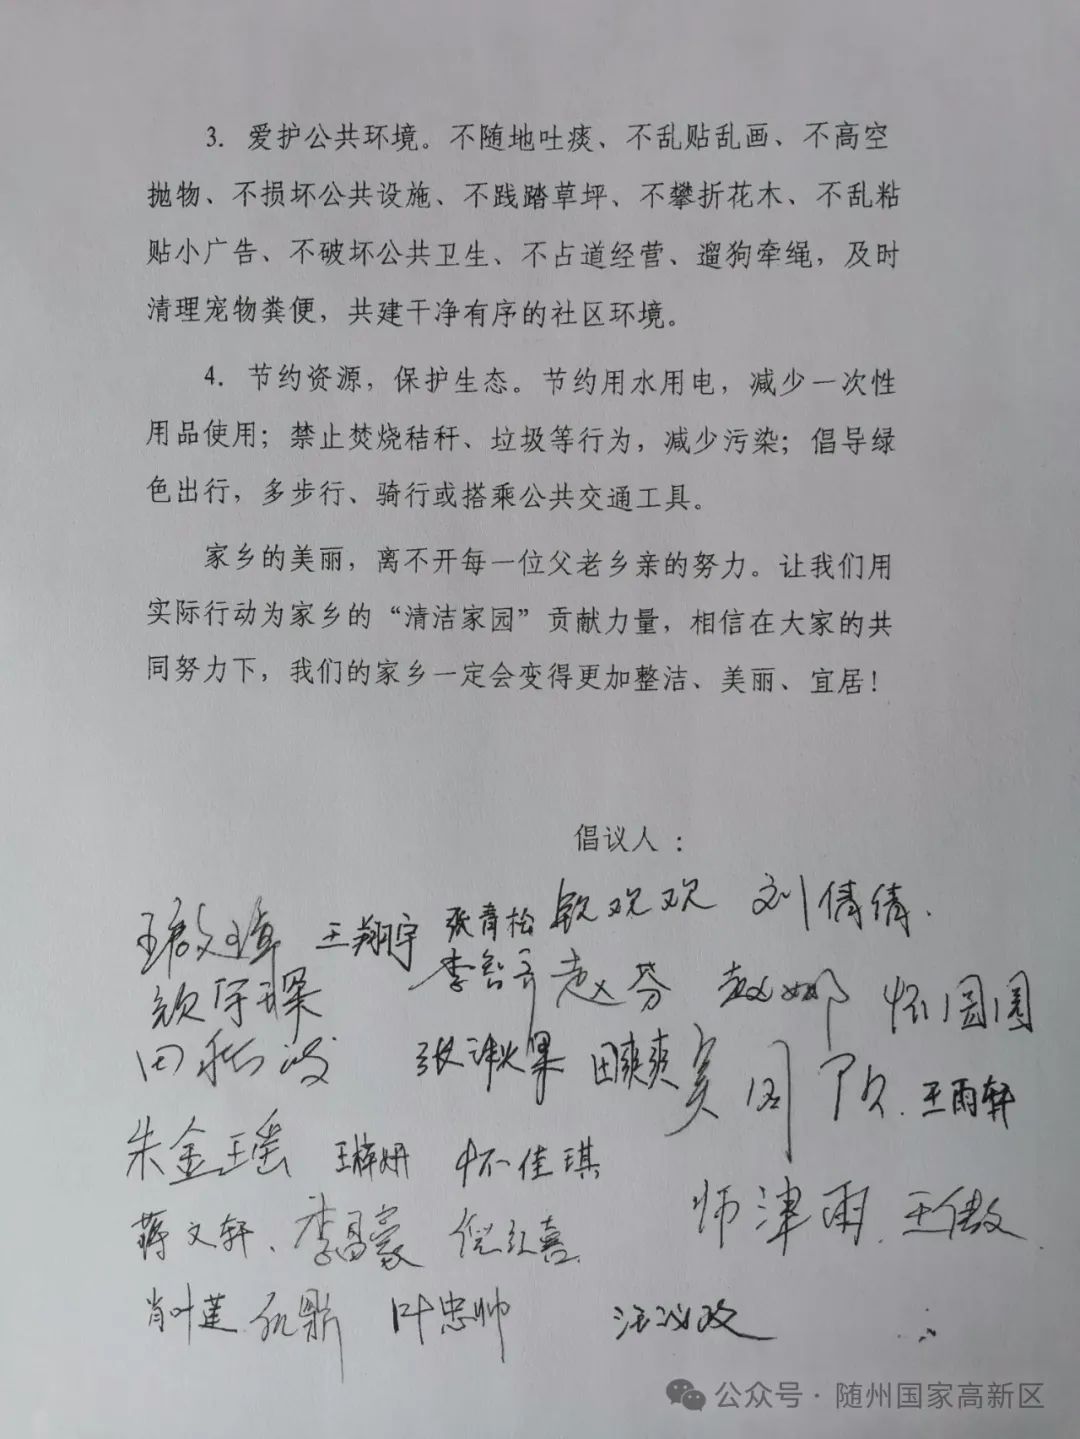 3. 爱护公共环境。不随地吐痰、不乱贴乱画、不高空
抛物、不损坏公共设施、不践踏草坪、不攀折花木、不乱粘
贴小广告、不破坏公共卫生、不占道经营、遛狗牵绳，及时
清理宠物粪便，共建干净有序的社区环境。
4. 节约资源，保护生态。节约用水用电，减少一次性
用品使用；禁止焚烧秸秆、垃圾等行为，减少污染；倡导绿
色出行，多步行、骑行或搭乘公共交通工具。
家乡的美丽，离不开每一位父老乡亲的努力。让我们用
实际行动为家乡的“清洁家园”贡献力量，相信在大家的共
同努力下，我们的家乡一定会变得更加整洁、美丽、宜居！
倡议人：
王翔宇 张青松 欢欢 刘倩倩
赵芬 赵娜 怀圆圆
田 张 果 田爽爽 王雨轩
朱金瑶 王梓妍 怀佳琪
师津雨 王傲
蒋文轩 李昌豪 倪红喜
肖叶莲 叶忠帅 汪
公众号·随州国家高新区